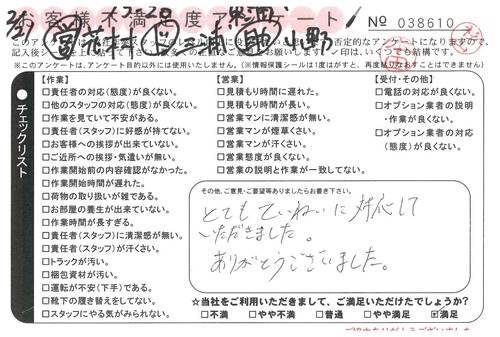 お客様不満足度アンケート
No 038610
※このアンケートは、アンケート目的以外には使用いたしません。(※情報保護シールは1度はがすと、再度貼りなおすことはできません)
チェックリスト
【作業】
□責任者の対応(態度)が良くない。
□他のスタッフの対応(態度)が良くない。
□作業を見ていて不安がある。
□責任者(スタッフ)に好感が持てない。
□お客様への挨拶が出来ていない。
□ご近所への挨拶・気遣いが無い。
□作業開始前の内容確認がなかった。
□作業開始時間が遅れた。
□荷物の取り扱いが雑である。
□お部屋の養生が出来ていない。
□作業時間が長すぎる。
□責任者(スタッフ)に清潔感が無い。
□責任者(スタッフ)が汗くさい。
□トラックが汚い。
□梱包資材が汚い。
□運転が不安(下手)である。
□靴下の履き替えをしてない。
□スタッフにやる気がみられない。
【営業】
□見積もり時間に遅れた。
□見積もり時間が長い。
□営業マンに清潔感が無い。
□営業マンが煙草くさい。
□営業マンが汗くさい。
□営業態度が良くない。
□営業の説明と作業が一致してない。
【受付・その他】
□電話の対応が良くない。
□オプション業者の説明
・作業が良くない。
□オプション業者の対応
(態度)が良くない。
その他、ご意見・ご要望等ありましたらお書き下さい。
とてもていねいに対応して
いただきました。
ありがとうございました。
☆当社をご利用いただきまして、ご満足いただけたでしょうか?
□不満 □やや不満 □普通 □やや満足 ☑満足